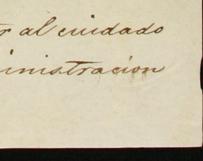 r al cuidado
inistracion